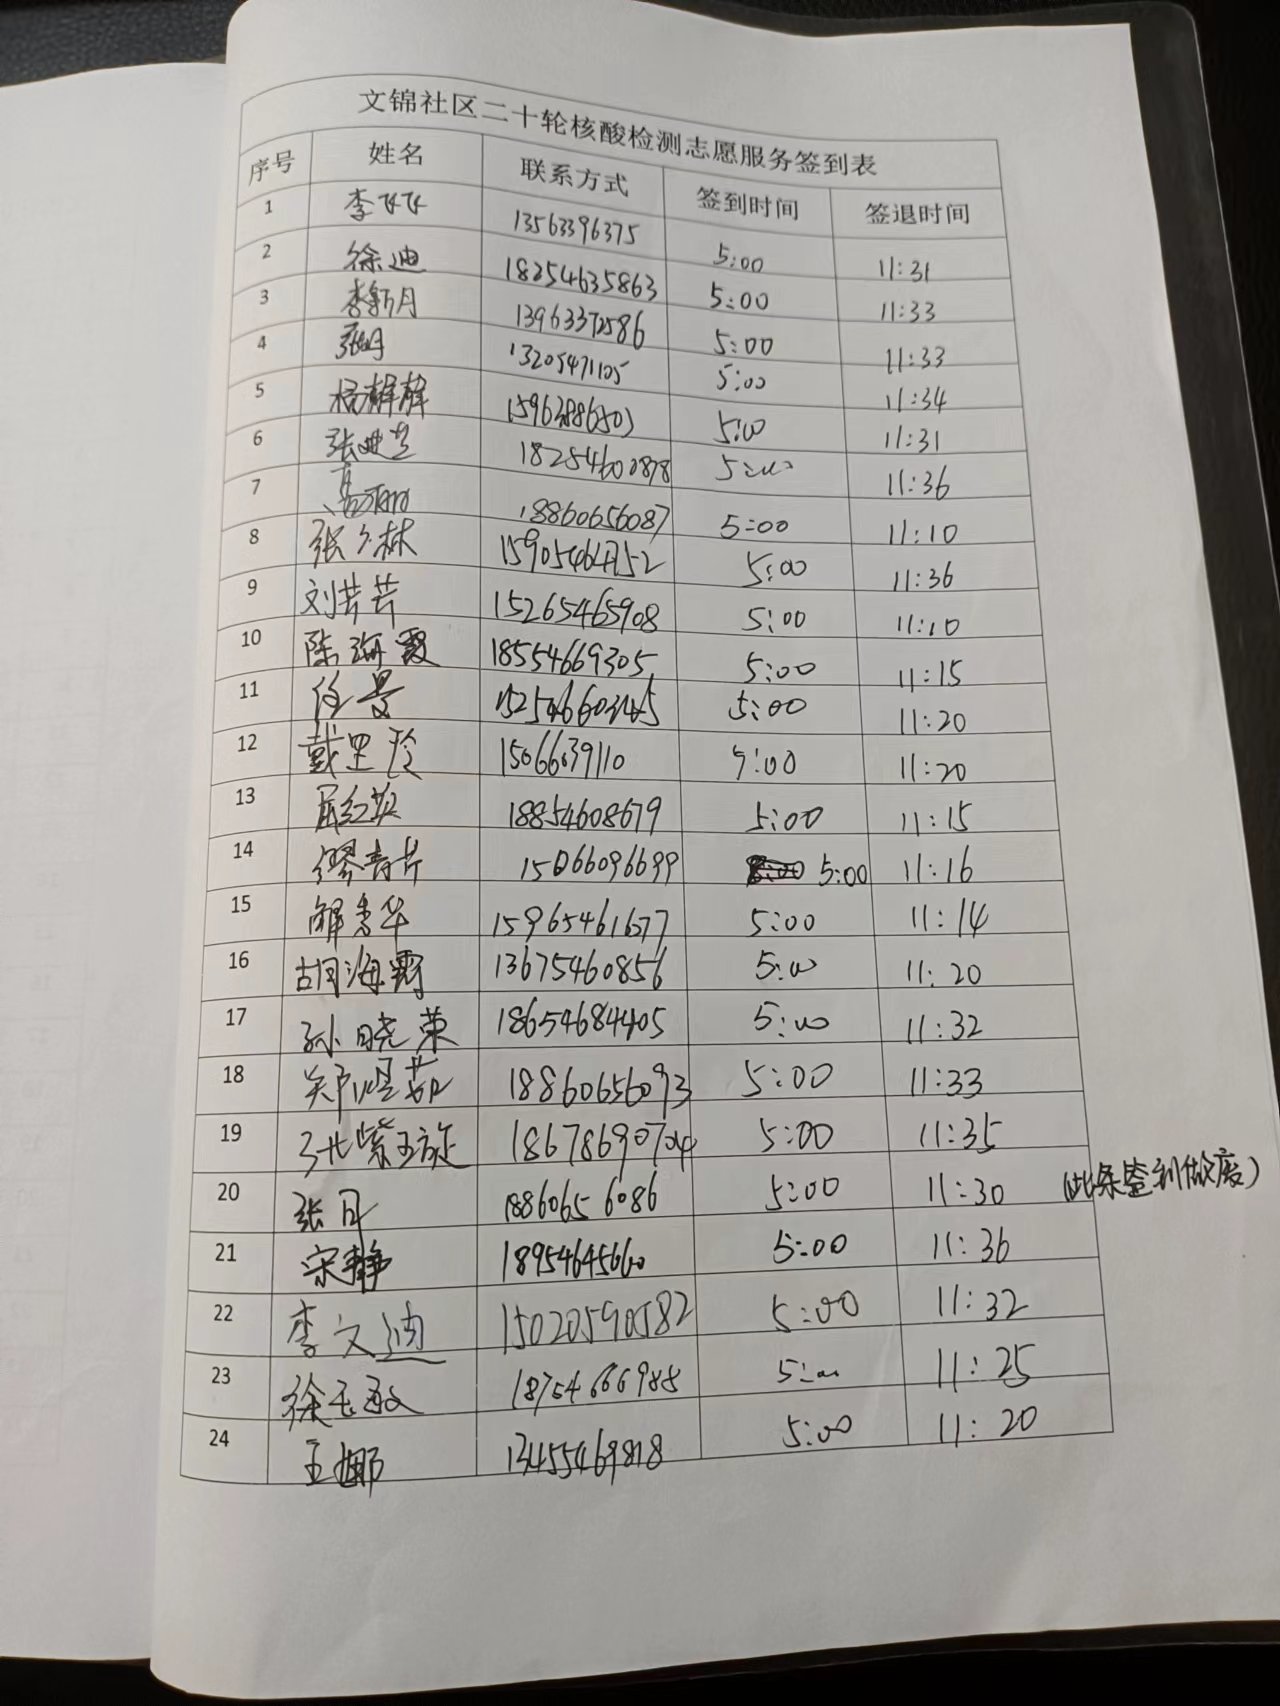 文锦社区二十轮核酸检测志愿服务签到表
序号 姓名 联系方式 签到时间 签退时间
1 李 13563396375 5:00 11:31
2 徐迪 18254635863 5:00 11:33
3 李新月 13963372586 5:00 11:33
4 13205471105 5:00 11:34
5 杨 5:00 11:31
6 张 18254600878 5:00 11:36
7 高丽 18860656087 5:00 11:10
8 张久林 5:00 11:36
9 刘芸芸 15265465908 5:00 11:10
10 陈海霞 18554669305 5:00 11:15
11 任曼 5:00 11:20
12 戴 玲 15066639110 5:00 11:20
13 屈红英 18854608679 5:00 11:15
14 缪青 15066096699 5:00 11:16
15 解秀华 15965461677 5:00 11:14
16 胡海霞 13675460856 5:00 11:20
17 孙晓荣 18654684405 5:00 11:32
18 郑煜茹 18860656093 5:00 11:33
19 张紫璇 18678690704 5:00 11:35
20 张丹 18860656086 5:00 11:30 (此条签到做废)
21 宋静 18954645660 5:00 11:36
22 李文迪 15020590582 5:00 11:32
23 徐玉敏 18754666988 5:00 11:25
24 王娜 13455469818 5:00 11:20